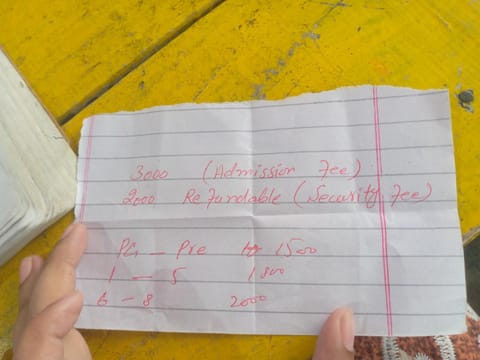 3000 (Admission Fee)
2000 Refundable (Security Fee)
PG - Pre 1500
1 - 5 1800
6 - 8 2000